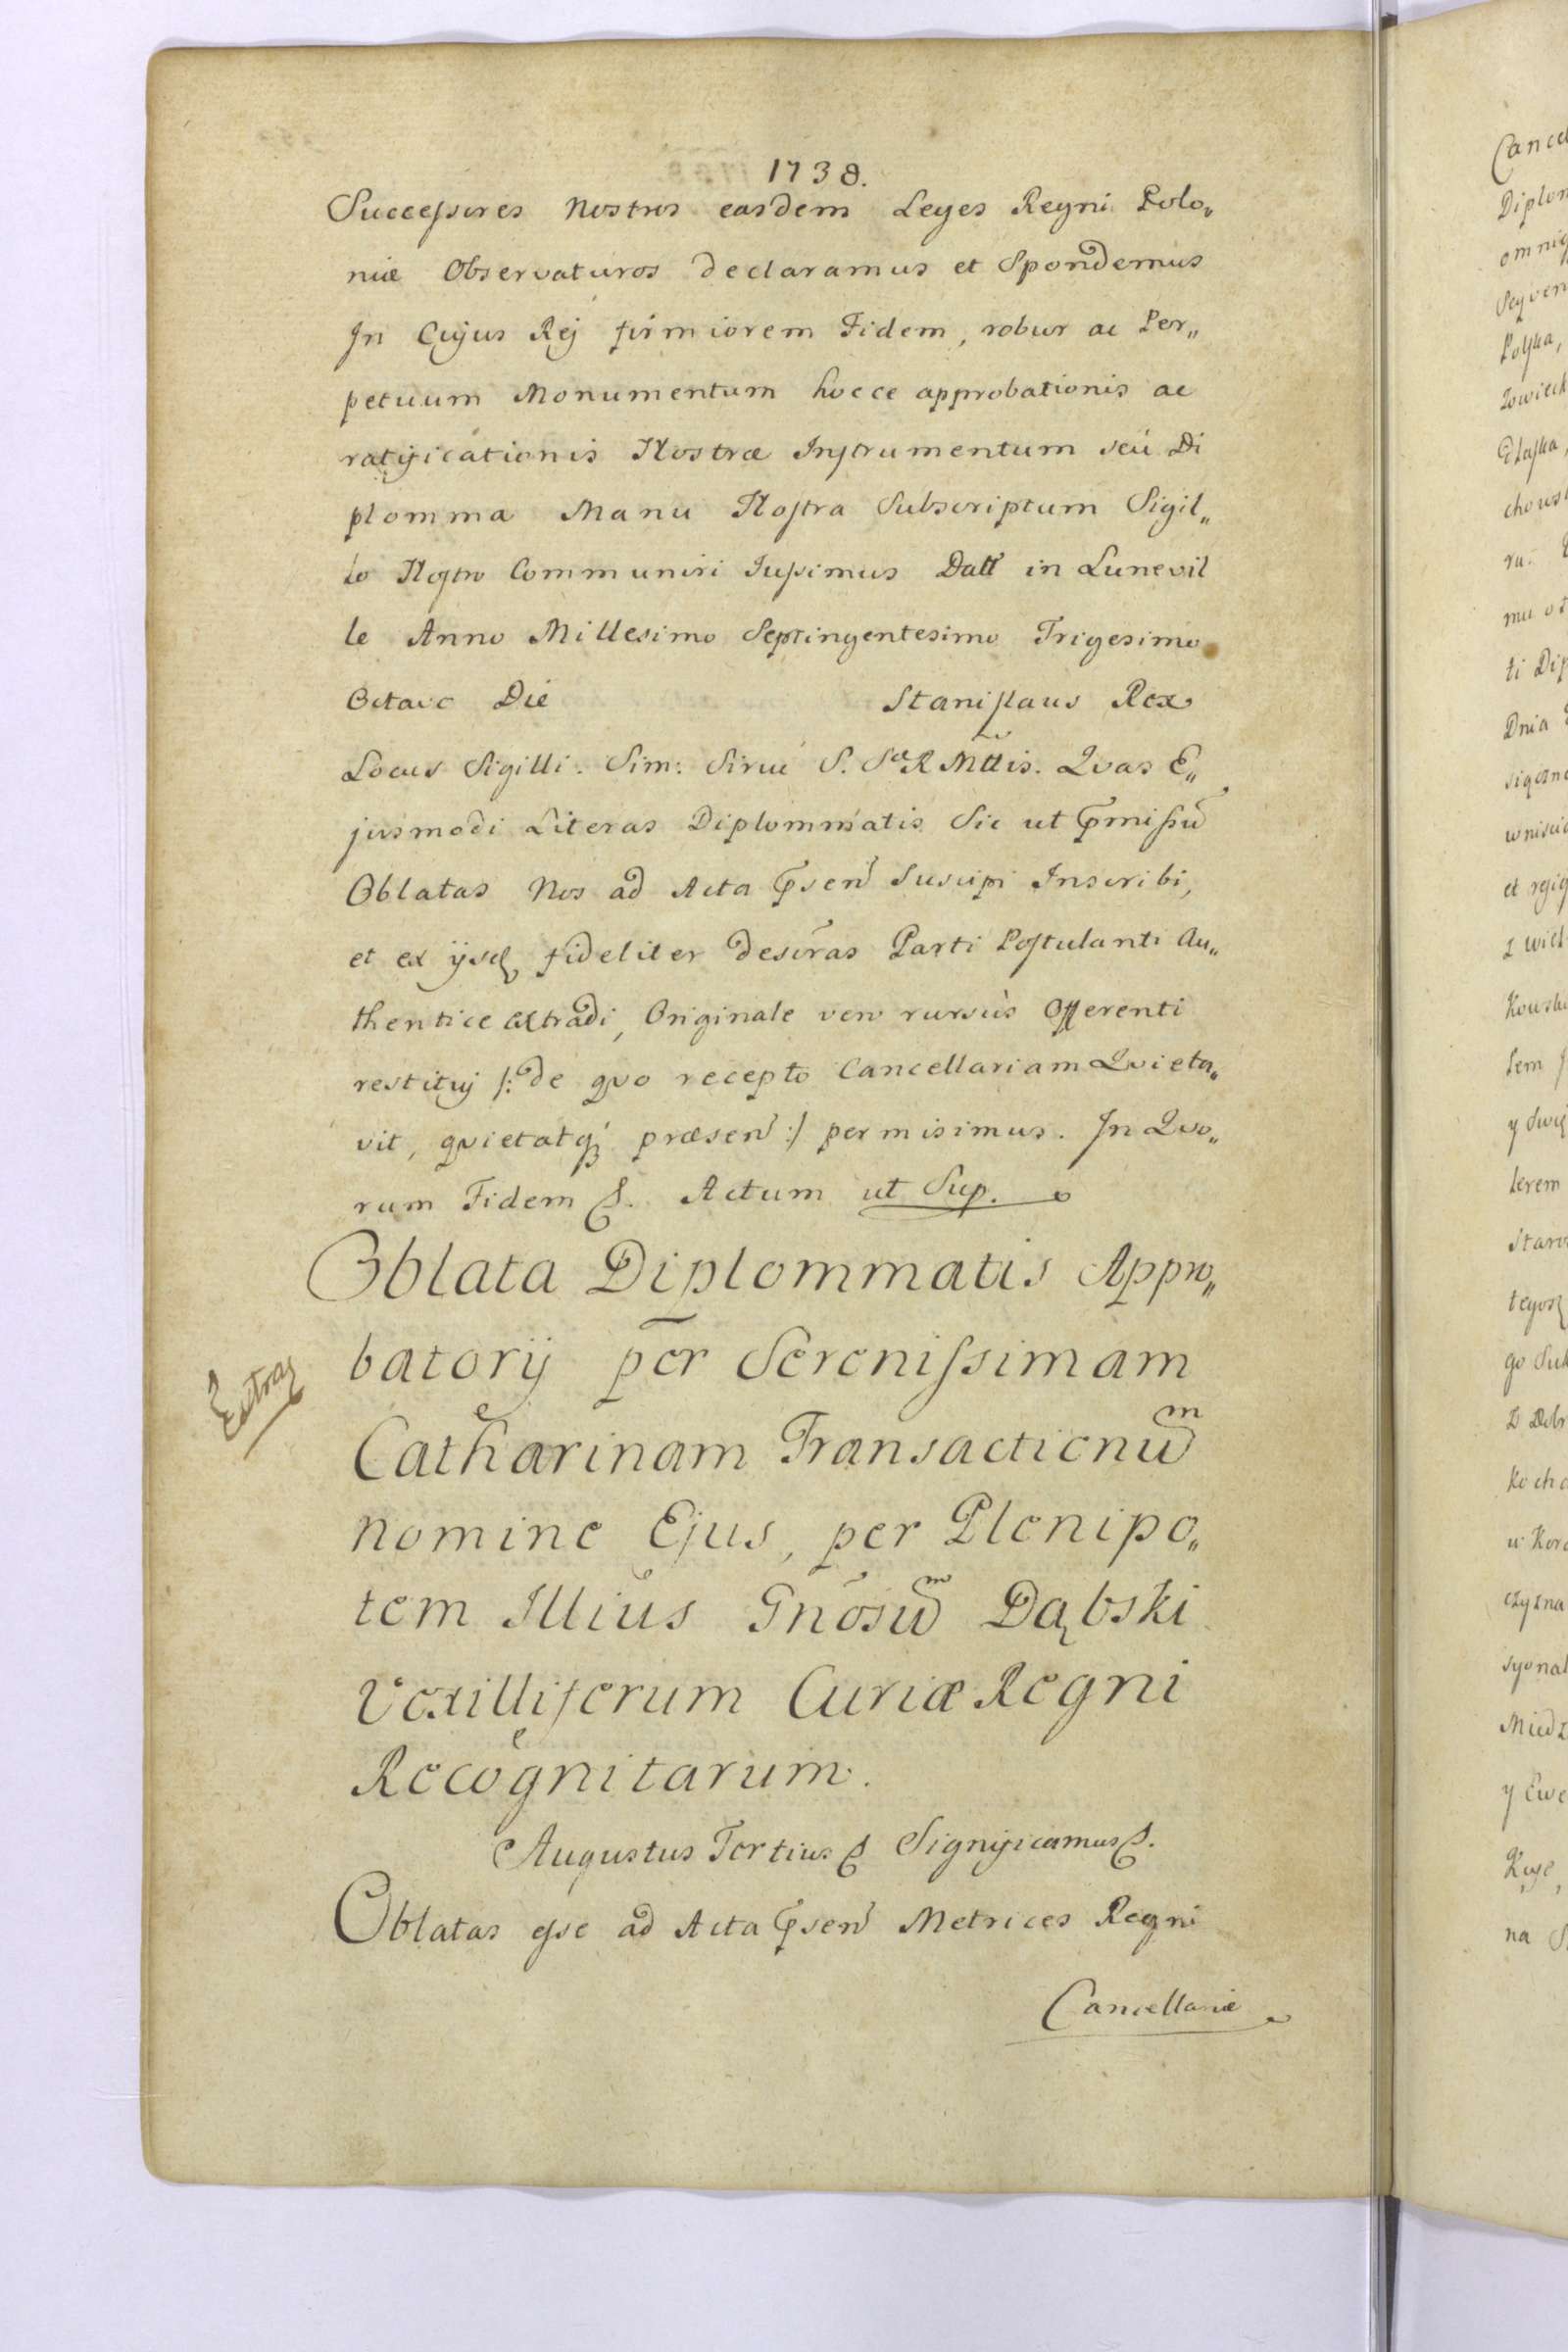 1738.
Successores Nostros easdem Leges Regni Polo„
niæ Observaturos declaramus et Spondemus
In Cujus Rej firmiorem Fidem, robur ac Per„
petuum Monumentum hocce approbationis ac
ratificationis Nostræ Instrumentum seu Di
plomma Manu Nostra Subscriptum Sigil„
lo Nostro Communiri Iussimus Datt in Lunevil
le Anno Millesimo Septingentesimo Trigesimo
Octavo Die Stanislaus Rex
Locus Sigilli. Sim: S. Sæ R Mttis. Qvas E„
jusmodi Literas Diplommatis Sic ut p̄missũ
Oblatas Nos ad Acta p̄sen Suscipi Inscribi,
et ex ijsd fideliter descr̃as Parti Postulanti Au„
thentice extradi, Originale vero rursùs Offerenti
restituj /: de qvo recepto Cancellariam Qvieta„
vit, qvietatq præsen :/ permisimus. In Qvo„
rum Fidem &. Actum ut Sup.
Oblata Diplommatis Appro„
batorij per Serenissimam
Extra
Catharinam Transactionũm
nomine Ejus, per Plenipo„
tem Illius Gnosũm Dąbski
Vexilliferum Curiæ Regni
Recognitarum.
Augustus Tertius & Significamus &.
Oblatas esse ad Acta p̄sen Metrices Regni
Cancellariæ
Cancel
Diplom
Seqven
mu
ti Dip
Dnia
et
z wiel
y
lerem
Staro
go Suk
Kocho
w Koro
czyzna
syonal
Miedz
y Ewe
na S